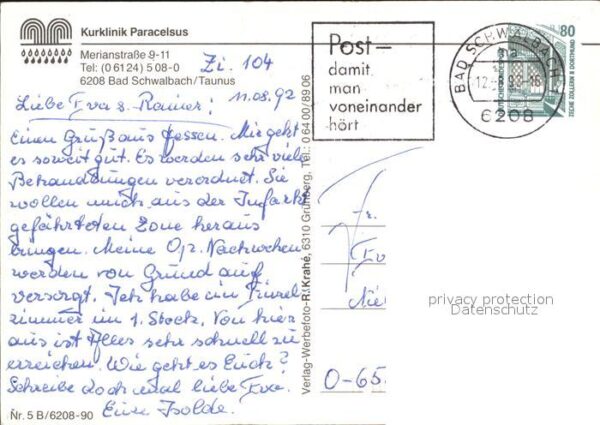 Kurklinik Paracelsus
Merianstraße 9-11
Tel: (0 61 24) 5 08-0
6208 Bad Schwalbach/Taunus
Zi. 104
Liebe Eva & Rainer! 11.08.92
Einen Gruß aus Hessen. Mir geht
es soweit gut. Es werden sehr viele
Behandlungen verordnet. Sie
wollen mich aus der Infarkt
gefährteten Zone heraus
bringen. Meine Op. Nachwehen
werden von Grund auf
versorgt. Ich habe ein Einzel
zimmer im 1. Stock. Von hier
aus ist Alles sehr schnell zu
erreichen. Wie geht es Euch?
Schreibe doch mal liebe Eva.
Eure Isolde.
Nr. 5 B/6208-90
Verlag-Werbefoto-R. Krahé, 6310 Grünberg, Tel.: 0 64 00/89 06
Post-
damit
man
voneinander
hört
BAD SCHWALBACH 1
12. 92-16
6208
80
DEUTSCHE BUNDESPOST
ZECHE ZOLLERN II DORTMUND
Fr.
Ev
Nie
O-65
privacy protection
Datenschutz